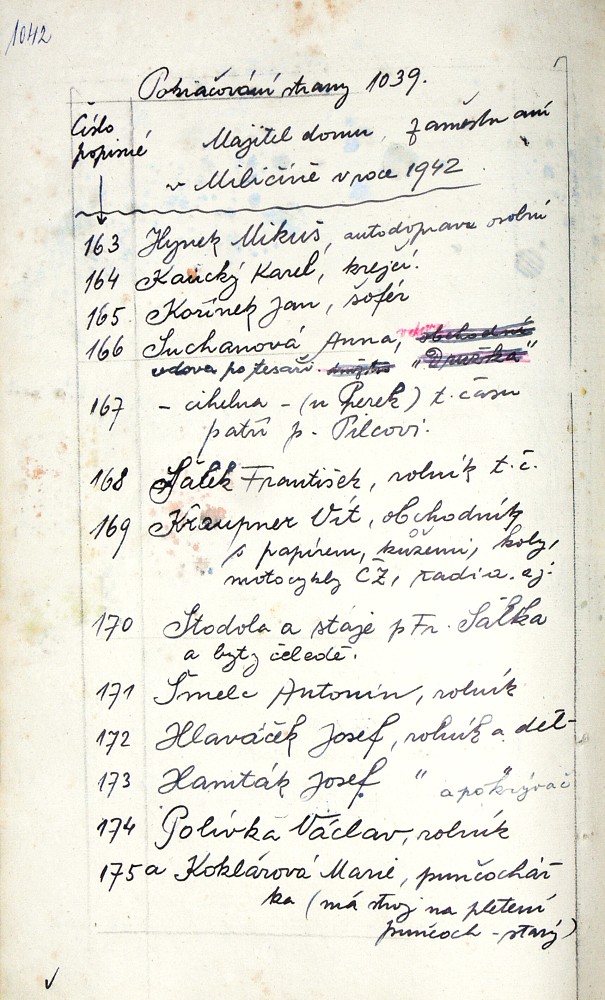 1042
Pokračování strany 1039.
Číslo popisné
Majitel domu, zaměstnaní
v Miličíně v roce 1942
163 Hynek Mikuš, autodoprava osobní
164 Kaucký Karel, krejčí.
165 Kořínek Jan, šofér
166 Suchanová Anna, obchodní
vdova po tesaři družstvo "Družka"
167 - cihelna - (u Perek) t. času
patří p. Pilcovi.
168 Šálek František, rolník t. č.
169 Kraupner Vít, obchodník
s papírem, kůžemi, koly,
motocykly ČZ, radia. aj.
170 Stodola a stáje p Fr. Šálka
a byty čeledě.
171 Šmelc Antonín, rolník
172 Hlaváček Josef, rolník a děl-
173 Hamták Josef " " a pokrývač
174 Polívka Václav, rolník
175a Koklárová Marie, punčochář-
ka (má stroj na pletení
punčoch - starý)